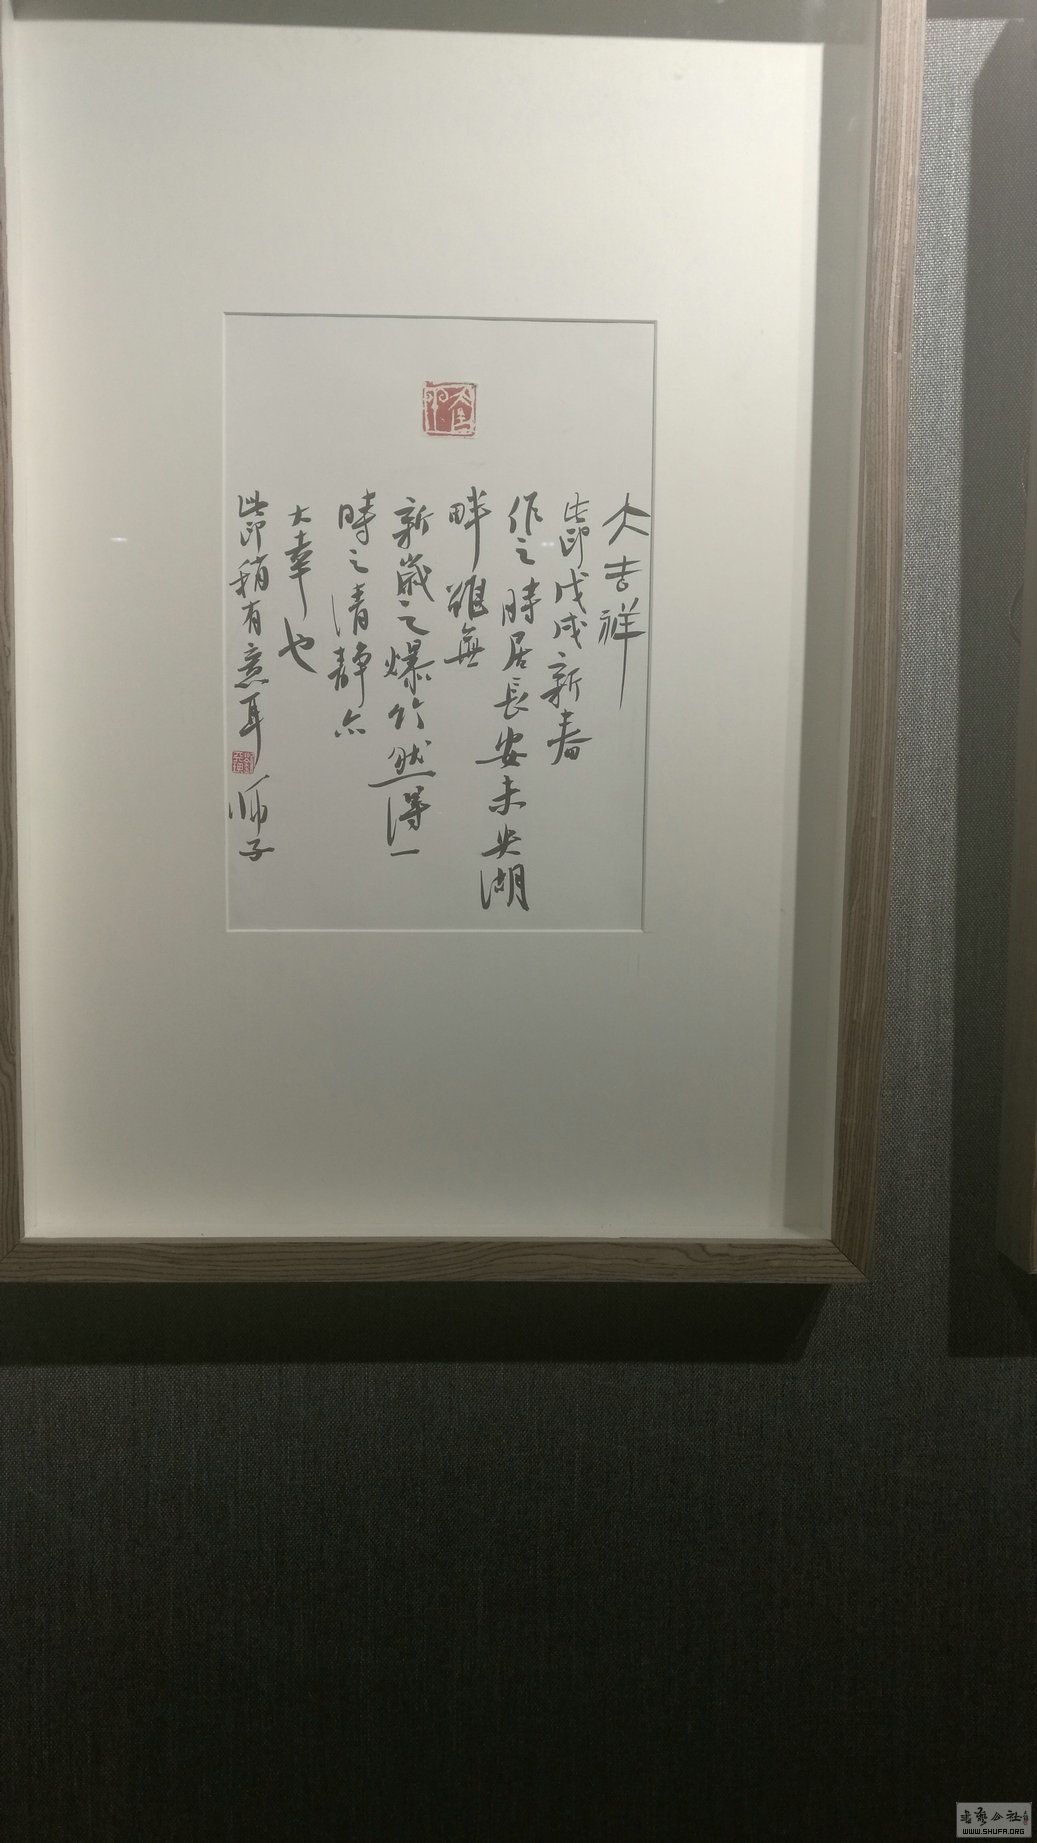 大吉祥
此印戊戌新春
作之時居長安未央湖
畔雖無
新歲之爆竹然得一
時之清靜亦
大幸也
此印稍有意耳
师子
書藝公社
WWW.SHUFA.ORG